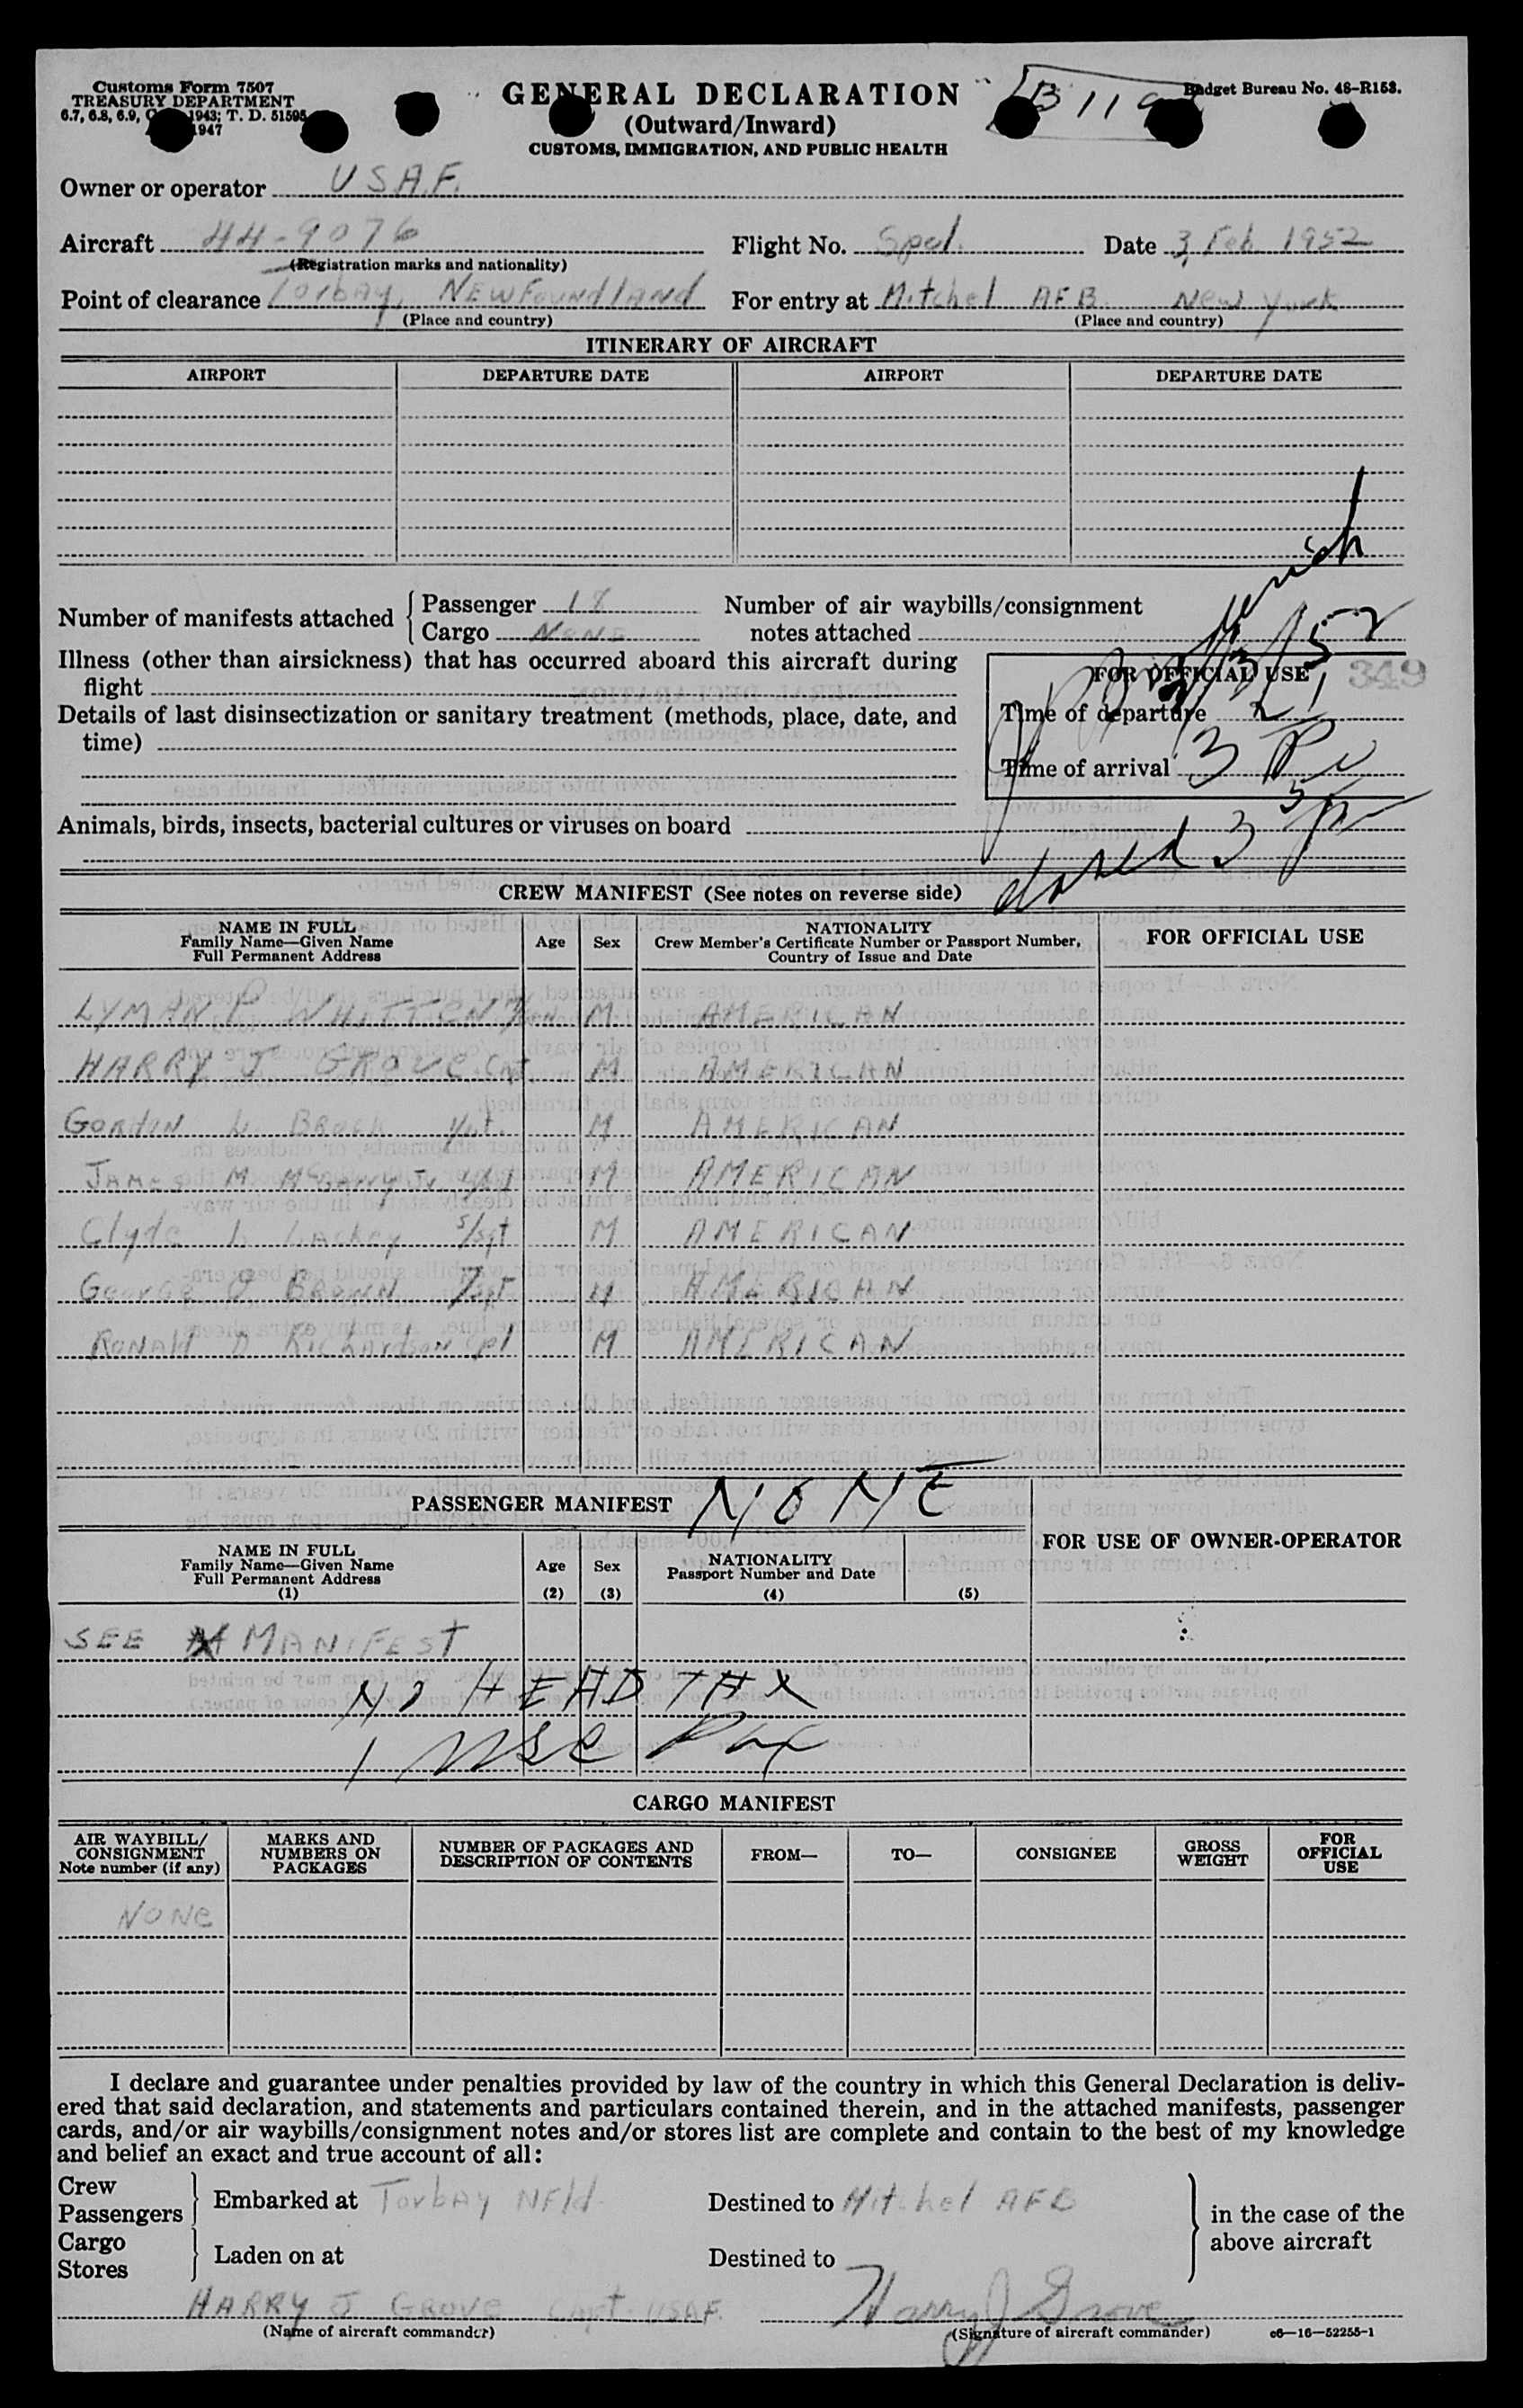 Customs Form 7507
TREASURY DEPARTMENT
6.7, 6.8, 6.9, 1943; T. D. 51595
1947
GENERAL DECLARATION
(Outward/Inward)
CUSTOMS, IMMIGRATION, AND PUBLIC HEALTH
B 119
Budget Bureau No. 48-R153.
Owner or operator U S.A.F.
Aircraft 44-9076 Flight No. Spcl. Date 3 Feb 1952
(Registration marks and nationality)
Point of clearance Torbay, NEWFoundlAND For entry at Mitchel AFB New York
(Place and country) (Place and country)
ITINERARY OF AIRCRAFT
AIRPORT DEPARTURE DATE AIRPORT DEPARTURE DATE
Number of manifests attached { Passenger 18
Cargo NONE
Number of air waybills/consignment
notes attached
Illness (other than airsickness) that has occurred aboard this aircraft during
flight
Details of last disinsectization or sanitary treatment (methods, place, date, and
time)
FOR OFFICIAL USE 349
Time of departure
Time of arrival 3
Animals, birds, insects, bacterial cultures or viruses on board
CREW MANIFEST (See notes on reverse side)
NAME IN FULL
Family Name—Given Name
Full Permanent Address
Age Sex
NATIONALITY
Crew Member's Certificate Number or Passport Number,
Country of Issue and Date
FOR OFFICIAL USE
LYMAN P WHITTEN M AMERICAN
HARRY J GROVE Cpt M AMERICAN
GORDIN L. M AMERICAN
JAMES M Jr M AMERICAN
Clyde L Lackey S/Sgt M AMERICAN
GeorGe O BROWN T/Sgt M AMERICAN
RONAld D Richardson Cpl M AMERICAN
PASSENGER MANIFEST NONE
NAME IN FULL
Family Name—Given Name
Full Permanent Address
(1)
Age
(2)
Sex
(3)
NATIONALITY
Passport Number and Date
(4) (5)
FOR USE OF OWNER-OPERATOR
SEE MANIFEST
NO HEAD TAX
1 USC Pax
CARGO MANIFEST
AIR WAYBILL/
CONSIGNMENT
Note number (if any)
MARKS AND
NUMBERS ON
PACKAGES
NUMBER OF PACKAGES AND
DESCRIPTION OF CONTENTS
FROM— TO— CONSIGNEE
GROSS
WEIGHT
FOR
OFFICIAL
USE
NONe
I declare and guarantee under penalties provided by law of the country in which this General Declaration is deliv-
ered that said declaration, and statements and particulars contained therein, and in the attached manifests, passenger
cards, and/or air waybills/consignment notes and/or stores list are complete and contain to the best of my knowledge
and belief an exact and true account of all:
Crew
Passengers } Embarked at Torbay NFld. Destined to Mitchel AFB
Cargo
Stores } Laden on at Destined to
} in the case of the
above aircraft
HARRY J GROVE Capt USAF. Harry J Grove
(Name of aircraft commander) (Signature of aircraft commander) c6—16—52255-1